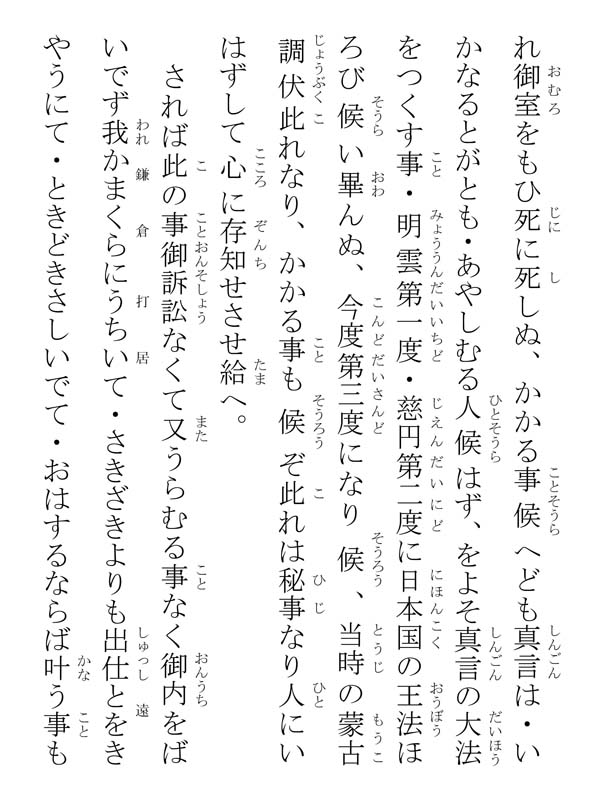 れ御室をもひ死に死しぬ、かかる事候へども真言は・い
かなるとがとも・あやしむる人候はず、をよそ真言の大法
をつくす事・明雲第一度・慈円第二度に日本国の王法ほ
ろび候い畢んぬ、今度第三度になり候、当時の蒙古
調伏此れなり、かかる事も候ぞ此れは秘事なり人にい
はずして心に存知せさせ給へ。
されば此の事御訴訟なくて又うらむる事なく御内をば
いでず我かまくらにうちいて・さきざきよりも出仕とをき
やうにて・ときどきさしいでて・おはするならば叶う事も